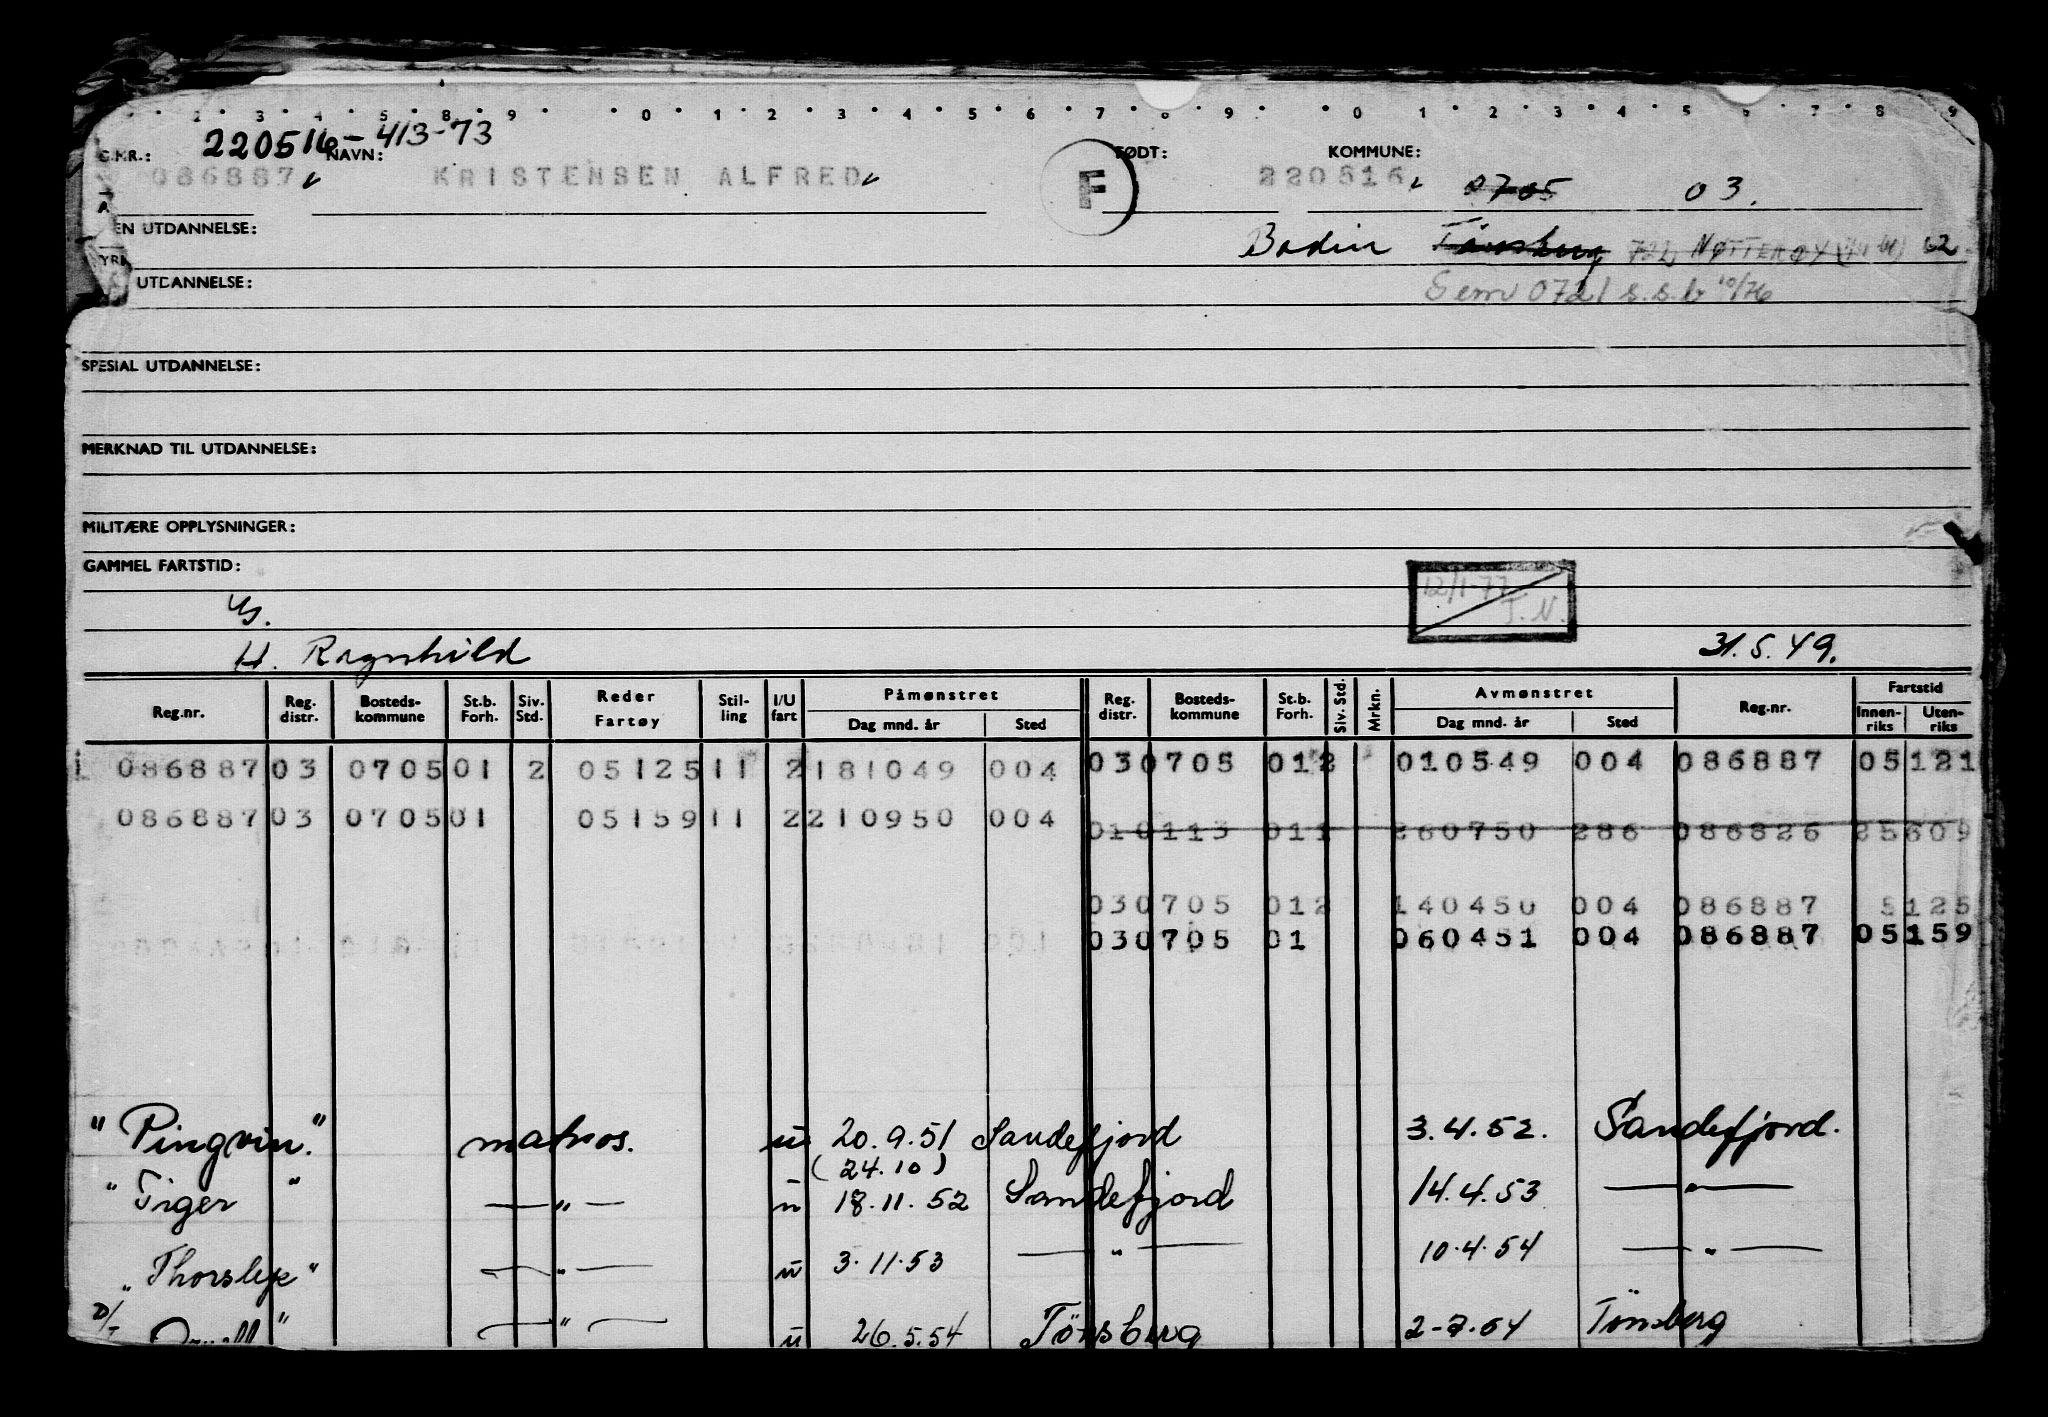 2 3 4 5 8 9 0 7 2 3 4 5 6 7 8 9 0 1 2 3 4 5 6 7 8 9
220516-413-73
G.NR.: NAVN: FØDT: KOMMUNE:
086887 KRISTENSEN ALFRED F 220516 0705 03.
EN UTDANNELSE: Bodin Tønsberg 722 NØTTERØY 62
UTDANNELSE: Sem 0721 s.s.b 10/76
SPESIAL UTDANNELSE:
MERKNAD TIL UTDANNELSE:
MILITÆRE OPPLYSNINGER:
GAMMEL FARTSTID: 12/1-77
T.N.
H. Ragnhild 31.5.49.
Reg.nr. Reg. distr. Bosteds-kommune St.b. Forh. Siv. Std. Reder Fartøy Stil-ling I/U fart Påmønstret Dag mnd. år Sted Reg. distr. Bosteds-kommune St.b. Forh. Siv. Std. Mrkn. Avmønstret Dag mnd. år Sted Reg.nr. Fartstid Innen-riks Uten-riks
086887 03 0705 01 2 05125 11 2 181049 004 03 0705 01 2 010549 004 086887 05 121
086887 03 0705 01 05159 11 2 210950 004
010113 011 260750 286 086826 25609
030705 012 140450 004 086887 5125
030705 01 060451 004 086887 05159
"Pingvin." matros. u 20.9.51 Sandefjord 3.4.52. Sandefjord.
(24.10)
"Tiger" —"— u 18.11.52 Sandefjord 14.4.53 —"—
"Thorslyr" —"— u 3.11.53 —"— 10.4.54 —"—
D/T " —"— u 26.5.54 Tönsberg 2-7.54 Tönsberg